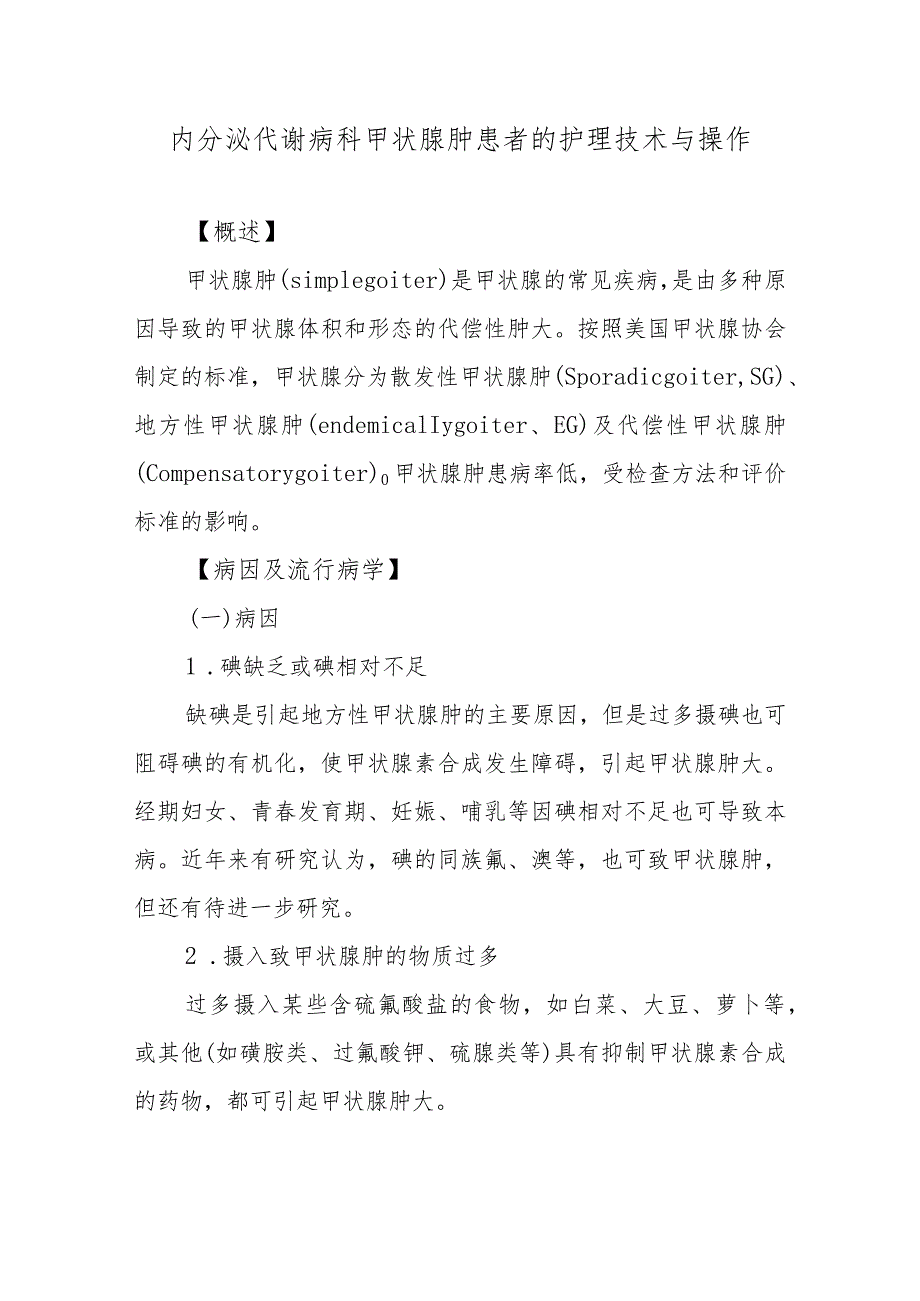 内分泌代谢病科甲状腺肿患者的护理技术与操作
【概述】
甲状腺肿(simplegoiter)是甲状腺的常见疾病,是由多种原
因导致的甲状腺体积和形态的代偿性肿大。按照美国甲状腺协会
制定的标准，甲状腺分为散发性甲状腺肿(Sporadicgoiter,SG)、
地方性甲状腺肿(endemicalIygoiter、EG)及代偿性甲状腺肿
(Compensatorygoiter)₀甲状腺肿患病率低，受检查方法和评价
标准的影响。
【病因及流行病学】
(一)病因
1 .碘缺乏或碘相对不足
缺碘是引起地方性甲状腺肿的主要原因，但是过多摄碘也可
阻碍碘的有机化，使甲状腺素合成发生障碍，引起甲状腺肿大。
经期妇女、青春发育期、妊娠、哺乳等因碘相对不足也可导致本
病。近年来有研究认为，碘的同族氟、澳等，也可致甲状腺肿，
但还有待进一步研究。
2 .摄入致甲状腺肿的物质过多
过多摄入某些含硫氟酸盐的食物，如白菜、大豆、萝卜等，
或其他(如磺胺类、过氟酸钾、硫腺类等)具有抑制甲状腺素合成
的药物，都可引起甲状腺肿大。